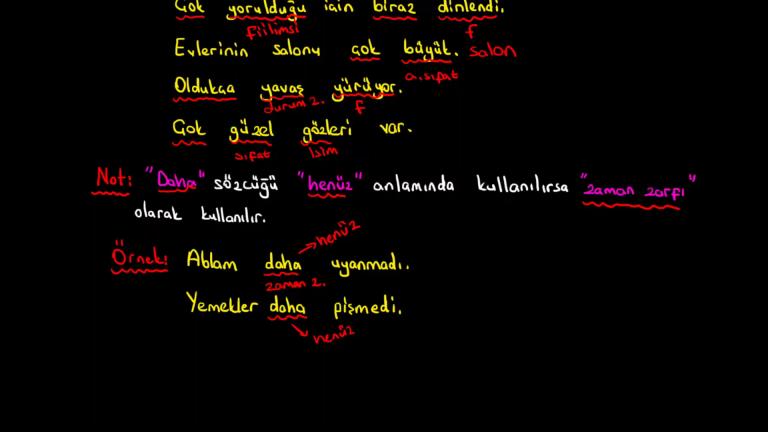 Çok yorulduğu için biraz dinlendi.
fiilimsi f
Evlerinin salonu çok büyük. salon
a.sıfat
Oldukça yavaş yürüyor.
durum z. f
Çok güzel gözleri var.
sıfat isim
Not: "Daha" sözcüğü "henüz" anlamında kullanılırsa "zaman zarfı"
olarak kullanılır.
henüz
Örnek: Ablam daha uyanmadı.
zaman z.
Yemekler daha pişmedi.
henüz